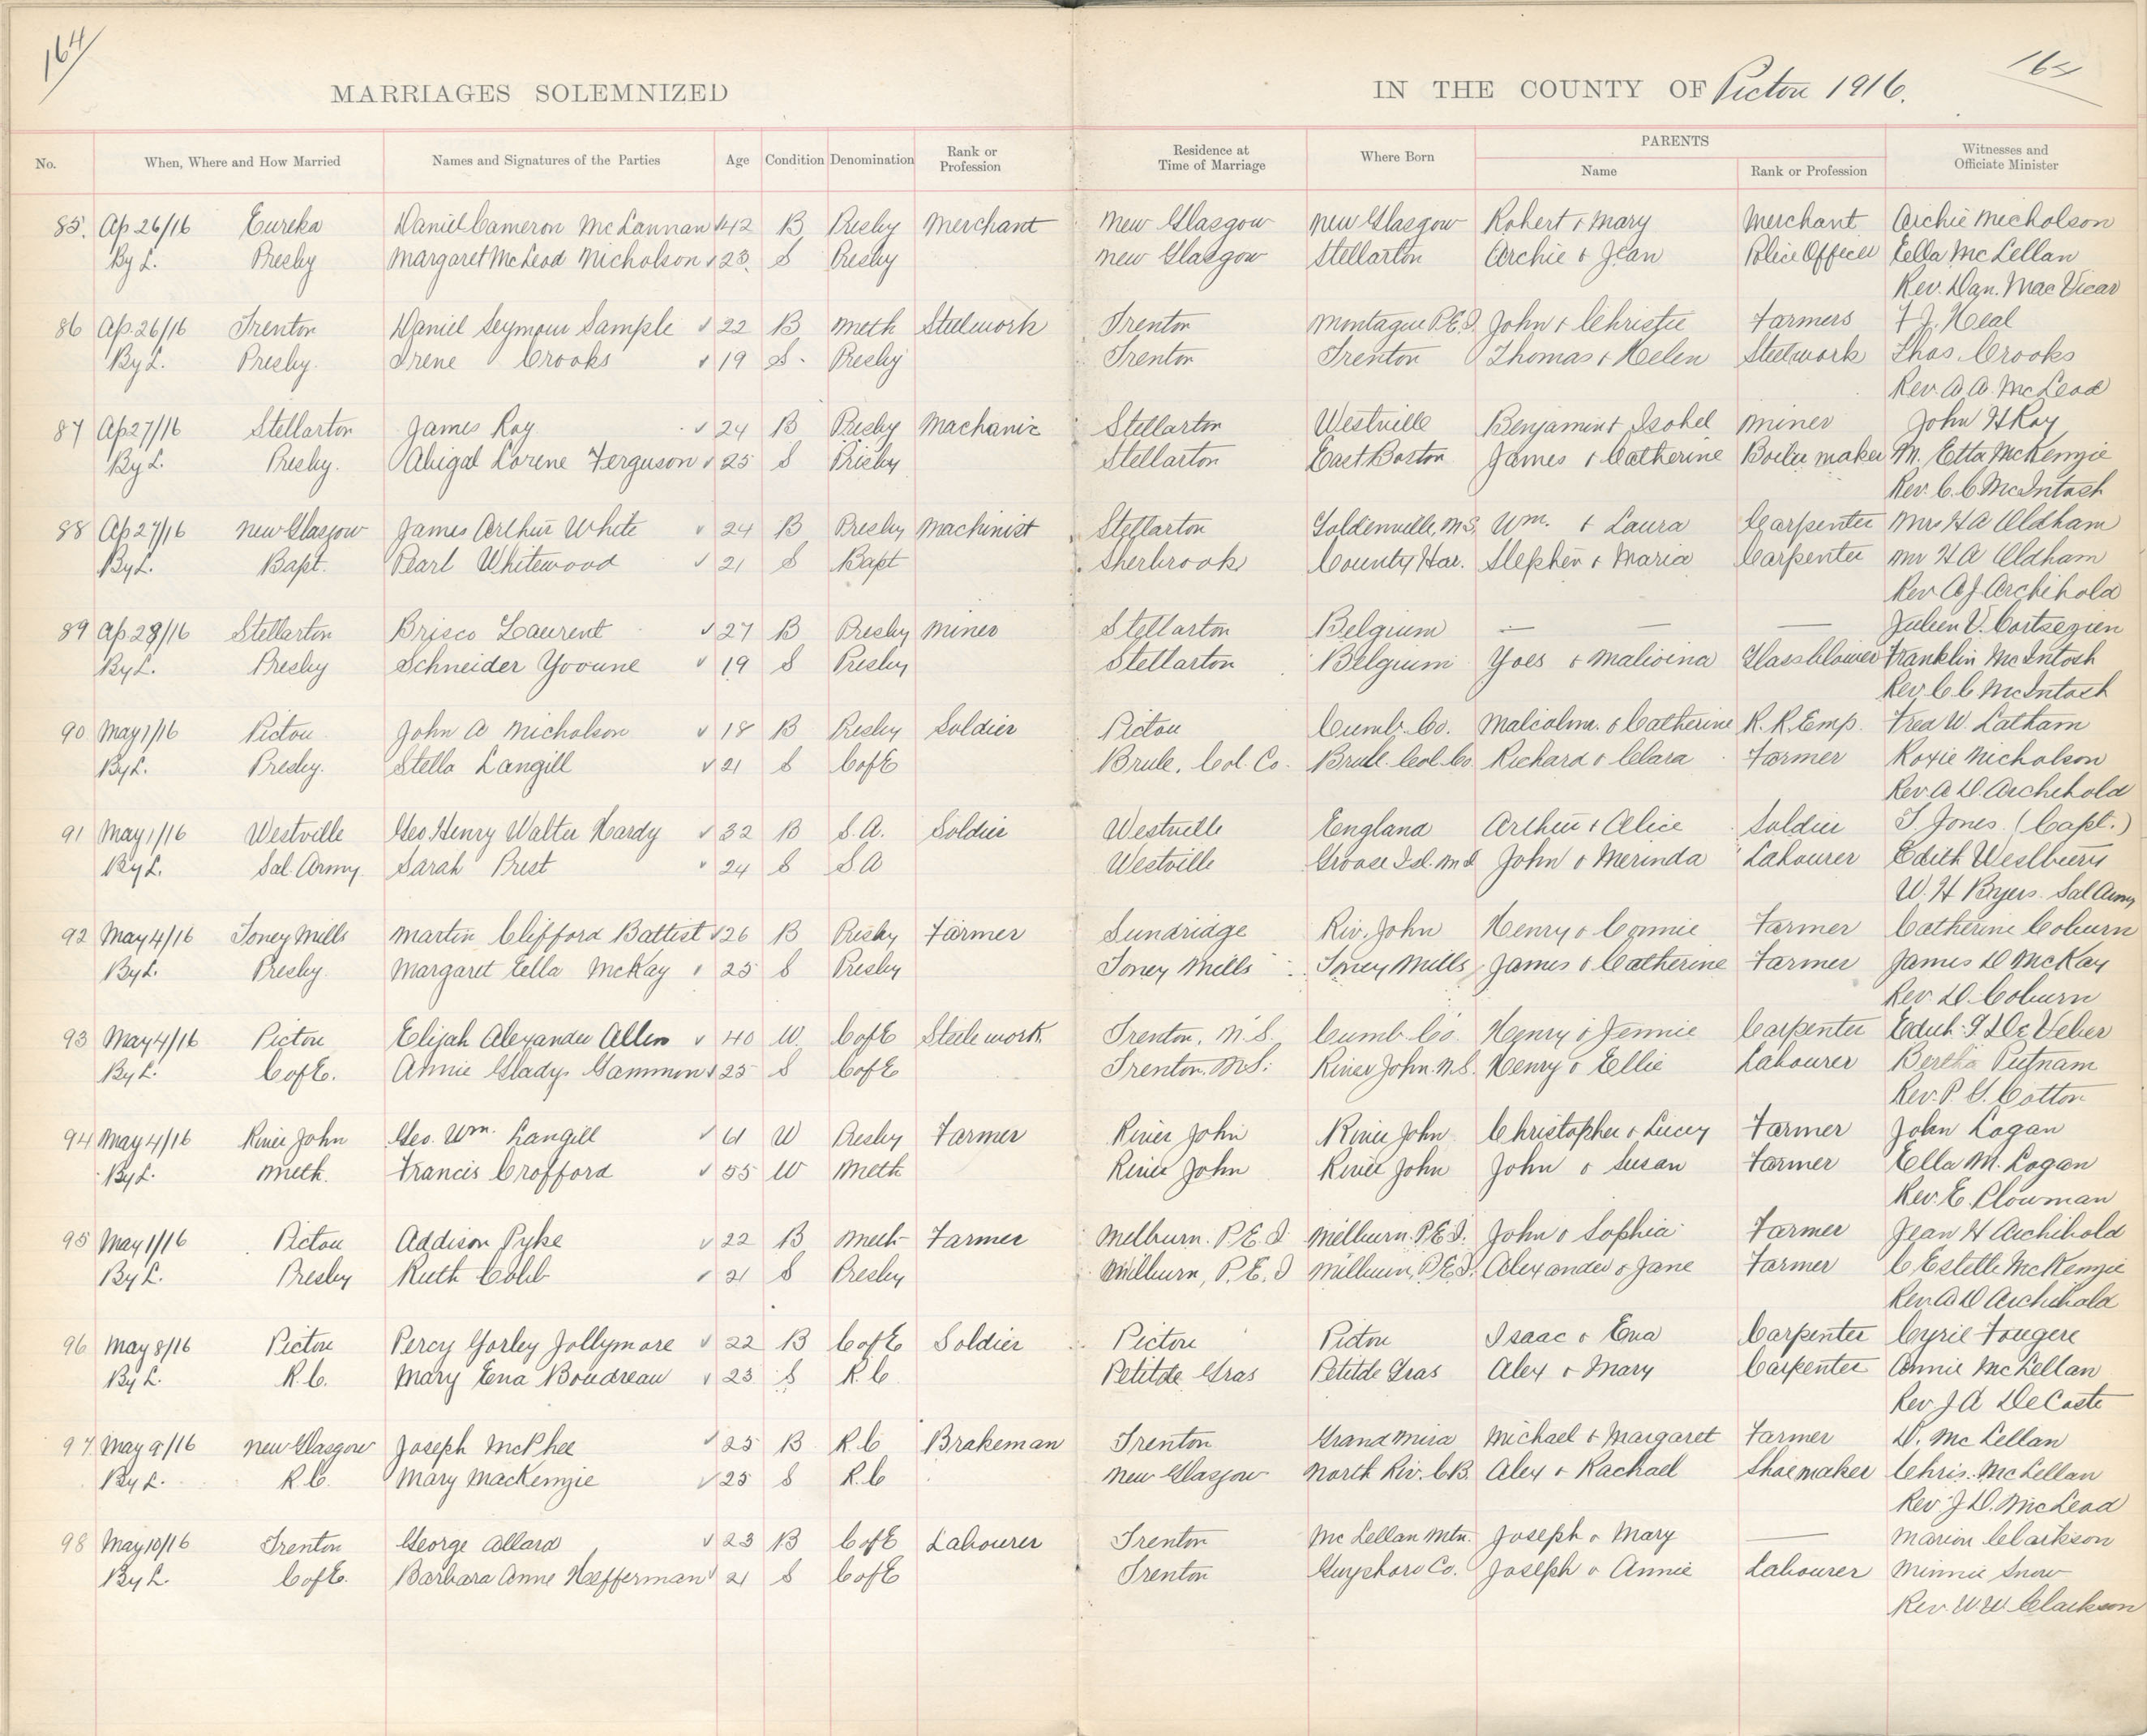 164
MARRIAGES SOLEMNIZED IN THE COUNTY OF Pictou 1916.
No. When, Where and How Married Names and Signatures of the Parties Age Condition Denomination Rank or Profession Residence at Time of Marriage Where Born PARENTS Name Rank or Profession Witnesses and Officiate Minister
85. Ap 26/16 Eureka Daniel Cameron McLannan 42 B Presby Merchant New Glasgow New Glasgow Robert & Mary Merchant Archie Nicholson
By L. Presby Margaret McLeod Nicholson 23 S Presby New Glasgow Stellarton Archie & Jean Police Officer Eella McLellan
Rev. Dan. MacVicar
86 Ap. 26/16 Trenton Daniel Seymour Sample 22 B Meth Steelwork Trenton Montague P.E.I. John & Christie Farmers F J. Neal
By L. Presby. Irene Crooks 19 S. Presby Trenton Trenton Thomas & Helen Steelwork Thos. Crooks
Rev. A. A. McLeod
87 Ap 27/16 Stellarton James Roy 24 B Presby Machanic Stellarton Westville Benjamin & Isobel Miner John H Roy
By L. Presby. Abigal Lorene Ferguson 25 S Presby Stellarton East Boston James & Catherine Boiler maker M. Etta McKenzie
Rev. C. C. McIntosh
88 Ap 27/16 New Glasgow James Arthur White 24 B Presby Machinist Stellarton Goldenville, N.S. Wm. & Laura Carpenter Mrs H A Oldham
By L. Bapt. Pearl Whitewood 21 S Bapt Sherbrook County Har. Stephen & Maria Carpenter Mr H A Oldham
Rev A J Archibald
89 Ap 28/16 Stellarton Brisco Laurent 27 B Presby Miner Stellarton Belgium — — — Julien V.
By L. Presby Schneider Yvoune 19 S Presby Stellarton Belgium Yves & Malvina Glassblower Franklin McIntosh
Rev. C C McIntosh
90 May 1/16 Pictou John A Nicholson 18 B Presby Soldier Pictou Cumb. Co. Malcolm. & Catherine R. R. Emp. Fred W. Latham
By L. Presby. Stella Langill 21 S C of E Brule, Col. Co. Brule. Col. Co. Richard & Clara Farmer Roxie Nicholson
Rev. A D. Archibald
91 May 1/16 Westville Geo. Henry Walter Hardy 32 B S. A. Soldier Westville England Arthur & Alice Soldier T. Jones. (Capt.)
By L. Sal. Army Sarah Prest 24 S S A Westville John & Merinda Labourer Edith Westbury
W. H Byers Sal Army
92 May 4/16 Toney Mills Martin Clifford Battist 26 B Presby Farmer Sundridge Riv. John Henry & Connie Farmer Catherine Coburn
By L. Presby. Margaret Eella McKay 25 S Presby Toney Mills Toney Mills James & Catherine Farmer James D McKay
Rev. D. Coburn
93 May 4/16 Pictou Elijah Alexander Allen 40 W. C of E Steelework Trenton, N.S. Cumb. Co. Henry & Jennie Carpenter Edith G DeVeber
By L. C of E. Annie Gladys Gammon 25 S C of E Trenton. N.S. River John. N.S. Henry & Ellie Labourer Bertha Putnam
Rev. P. G. Cotton
94 May 4/16 River John Geo. Wm. Langill 61 W Presby Farmer River John River John Christopher & Lucey Farmer John Logan
By L. Meth. Francis Crofford 55 W Meth River John River John John & Susan Farmer Ella M. Logan
Rev. E. Plowman
95 May 1/16 Pictou Addison Pyke 22 B Meth Farmer Melburn. P.E.I Milburn. P.E.I. John & Sophia Farmer Jean H Archibald
By L. Presby Ruth Cobb 21 S Presby Milburn, P.E.I Milburn, P.E.I. Alexander & Jane Farmer C Estelle McKenzie
Rev. A D Archibald
96 May 8/16 Pictou Percy Gorley Jollymore 22 B C of E Soldier Pictou Pictou Isaac & Ena Carpenter Cyril Fougere
By L. R. C. Mary Ena Boudreau 23 S R. C Petitde Gras Petitde Gras Alex & Mary Carpenter Annie McLellan
Rev J A DeCoste
97. May 9/16 New Glasgow Joseph McPhee 25 B R. C Brakeman Trenton Grand Mira Michael & Margaret Farmer D. McLellan
By L. R. C. Mary MacKenzie 25 S R. C New Glasgow North Riv. C.B. Alex & Rachael Shoemaker Chris. McLellan
Rev. J D. McLeod
98 May 10/16 Trenton George Allard 23 B C of E Labourer Trenton McLellan Mtn. Joseph & Mary — Marion Clarkson
By L. C of E. Barbara Anne Hefferman 21 S C of E Trenton Guysboro Co. Joseph & Annie Labourer Minnie Snow
Rev. W. W Clarkson